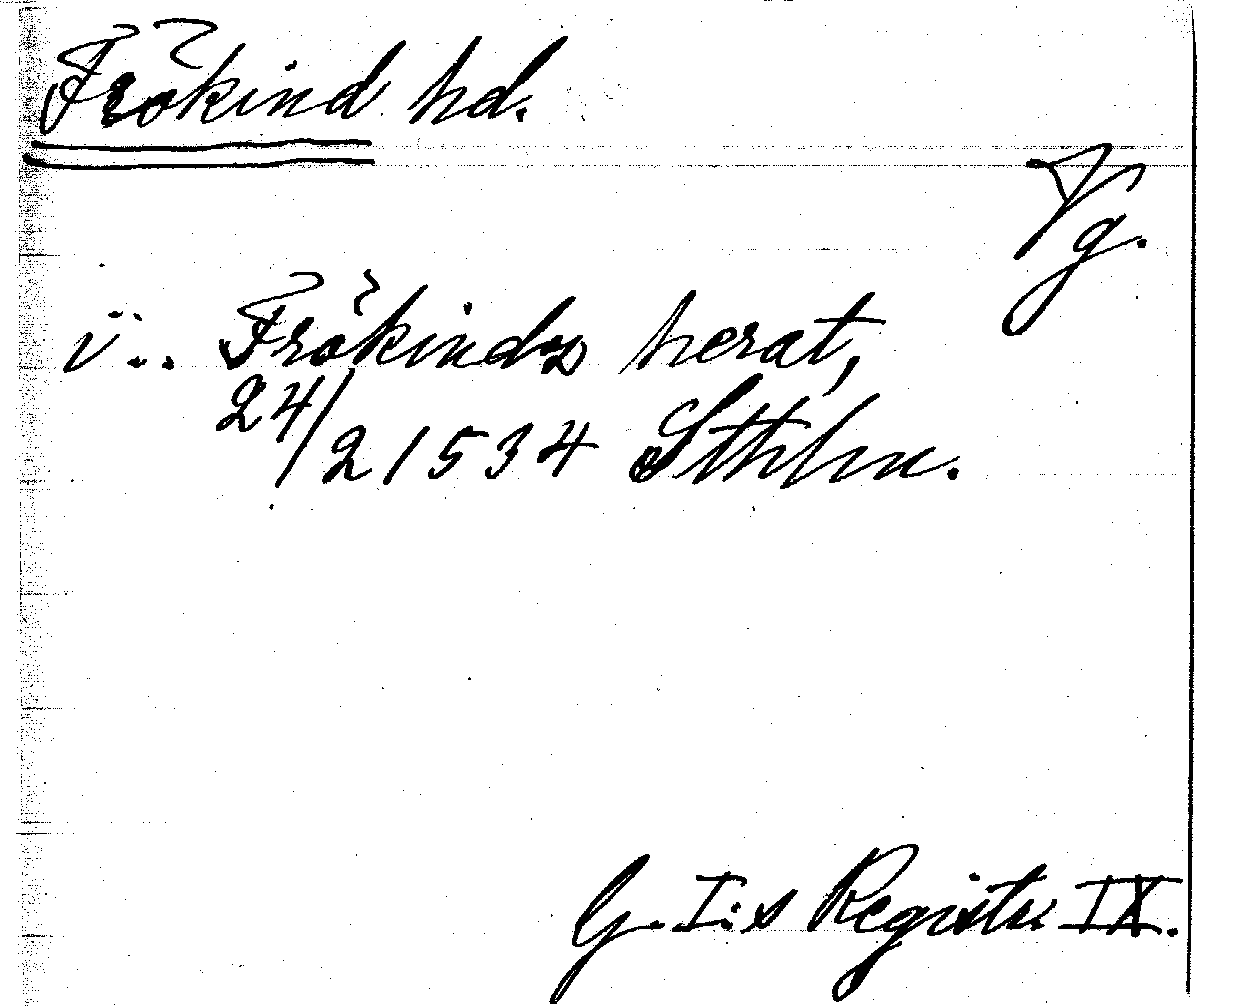 Frökind hd.
Vg.
i.. Frökindz herat,
24/2 1534 Sthlm.
G. I:s Registr. IX.